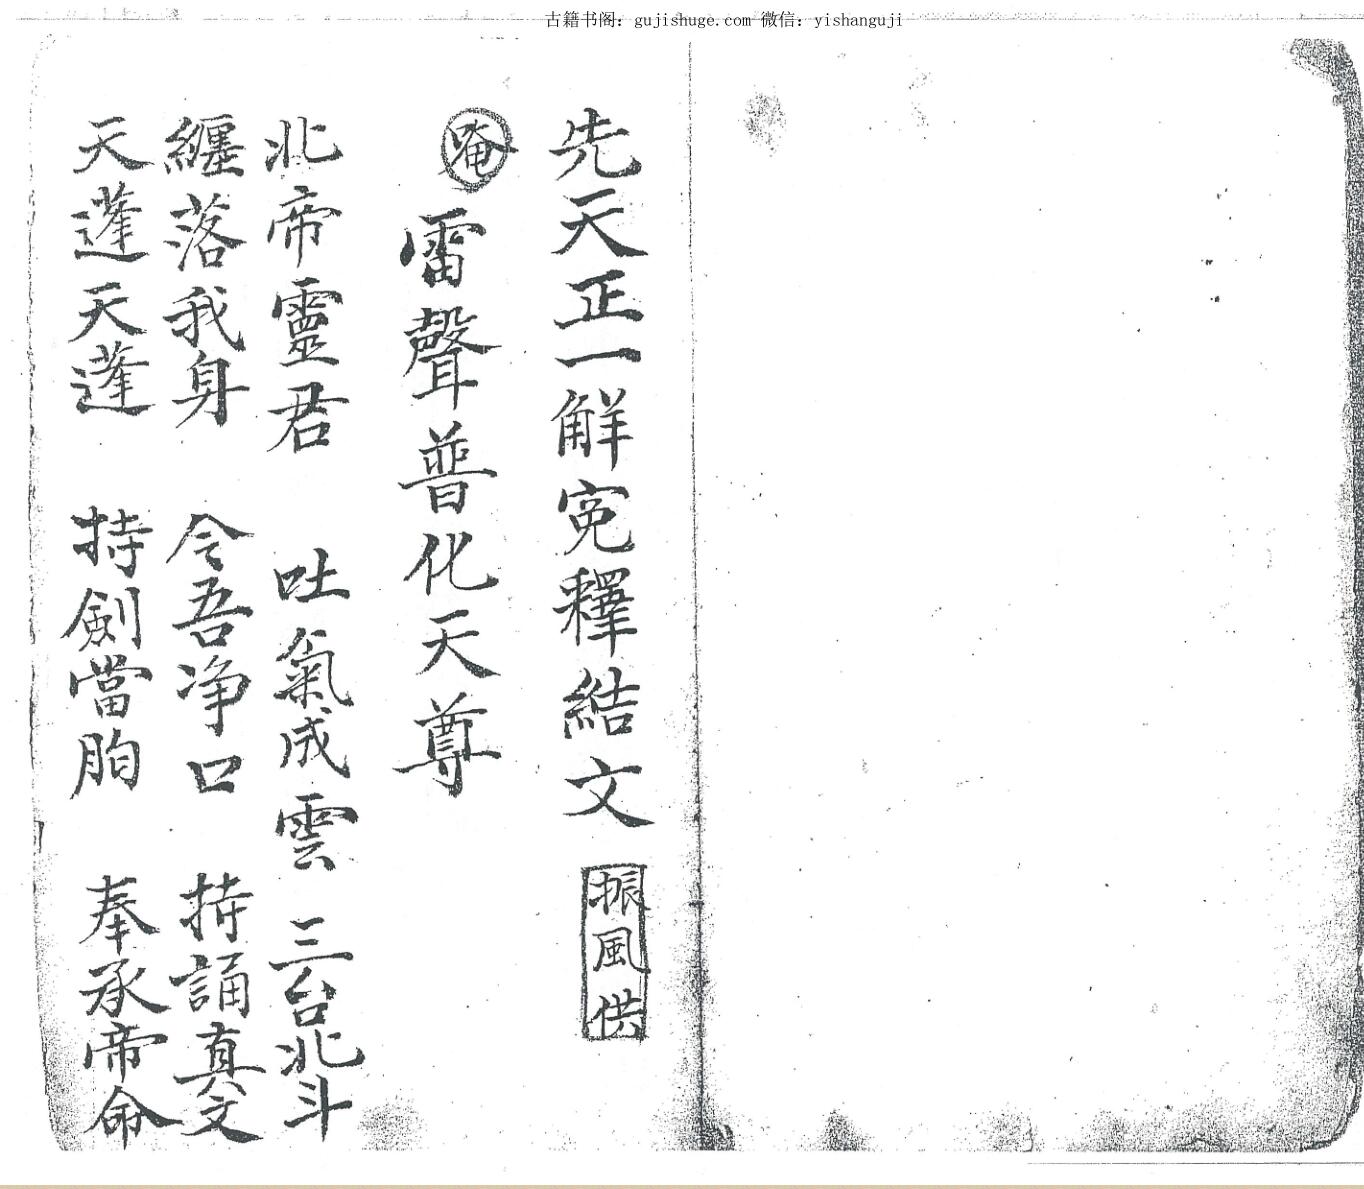 古籍书阁：gujishuge.com 微信：yishanguji
先天正一解冤釋結文 振風供
唵 雷聲普化天尊
北帝靈君 吐氣成雲 三台北斗
纏落我身 令吾净口 持誦真文
天蓬天蓬 持劍當胸 奉承帝命